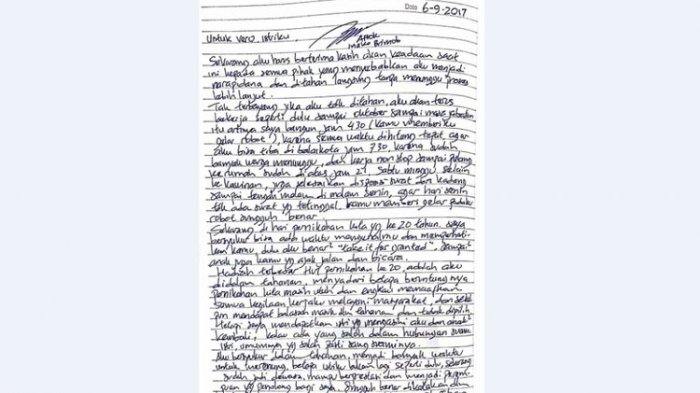 Date 6-9-2017
Untuk Vero, istriku
Ahok
Mako Brimob
Sekarang aku harus berterima kasih akan keadaan saat
ini kepada semua pihak yang menyebabkan aku menjadi
narapidana dan ditahan langsung tanpa menunggu proses
lebih lanjut.
Tak terbayang jika aku tdk ditahan, aku akan terus
bekerja seperti dulu sampai oktober sampai masa jabatan
itu artinya saya bangun, jam 4.30 (kamu memberiku
gelar robot), karena semua waktu dihitung tepat agar
aku bisa tiba di balaikota jam 7.30, karena sudah
banyak warga menunggu, dan kerja non stop sampai pulang
ke rumah sudah di atas jam 21. Sabtu minggu selain
ke kawinan, juga selesaikan disposisi surat dan kadang
sampai tengah malam di malam senin, agar hari senin
tdk ada surat yg tertinggal. kamu memberi gelar
robot sungguh benar.
Sekarang di hari pernikahan kita yg ke 20 tahun. saya
bersyukur bisa ada waktu mengenalmu dan memperhati-
kan kamu, dulu aku benar2 "take it for granted". Sampai
anak juga kamu yg ajak jalan dan bicara.
Hadiah terbesar HUT pernikahan ke 20, adalah aku
didalam tahanan, menyadari betapa beruntungnya
pernikahan kita masih utuh dan engkau memaafkan
semua kegilaan kerjaku melayani masyarakat, dan
pun mendapat balasan masuk ke tahanan dan tidak dipilih
tetapi saya mendapatkan istri yg mengasihi aku dan anak2
kembali, kalau ada yang salah dalam hubungan suami
istri, umumnya yg salah pasti sang suaminya.
Aku bersyukur dalam tahanan, menjadi banyak waktu
untuk merenung, belajar lagi seperti dulu, sekarang
sudah jadi dewasa, mampu berprestasi dan menjadi
yg bagi saya. Sungguh benar dikatakan